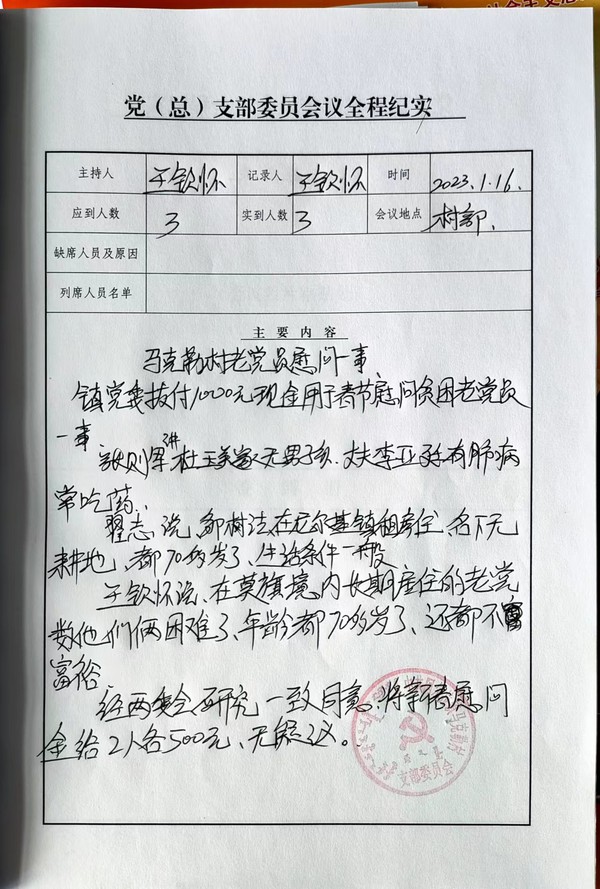 党（总）支部委员会议全程纪实
主持人 王钦怀 记录人 王钦怀 时间 2023.1.16.
应到人数 3 实到人数 3 会议地点 村部、
缺席人员及原因
列席人员名单
主要内容
马克勒村老党员慰问一事、
镇党委拨付1000元现金用于春节慰问贫困老党员
一事、
张则军讲杜玉美家无男子、丈夫李亚孬有肺病
常吃药、
翟志说、邹树法在尼尔基镇租房住、名下无
耕地、都70多岁了、生活条件一般
王钦怀说、在莫旗境内长期居住的老党
数他们俩困难了、年龄都70多岁了、还都不
富裕、
经两委会研究一致同意、将新春慰问
金给2人各500元、无异议。
支部委员会